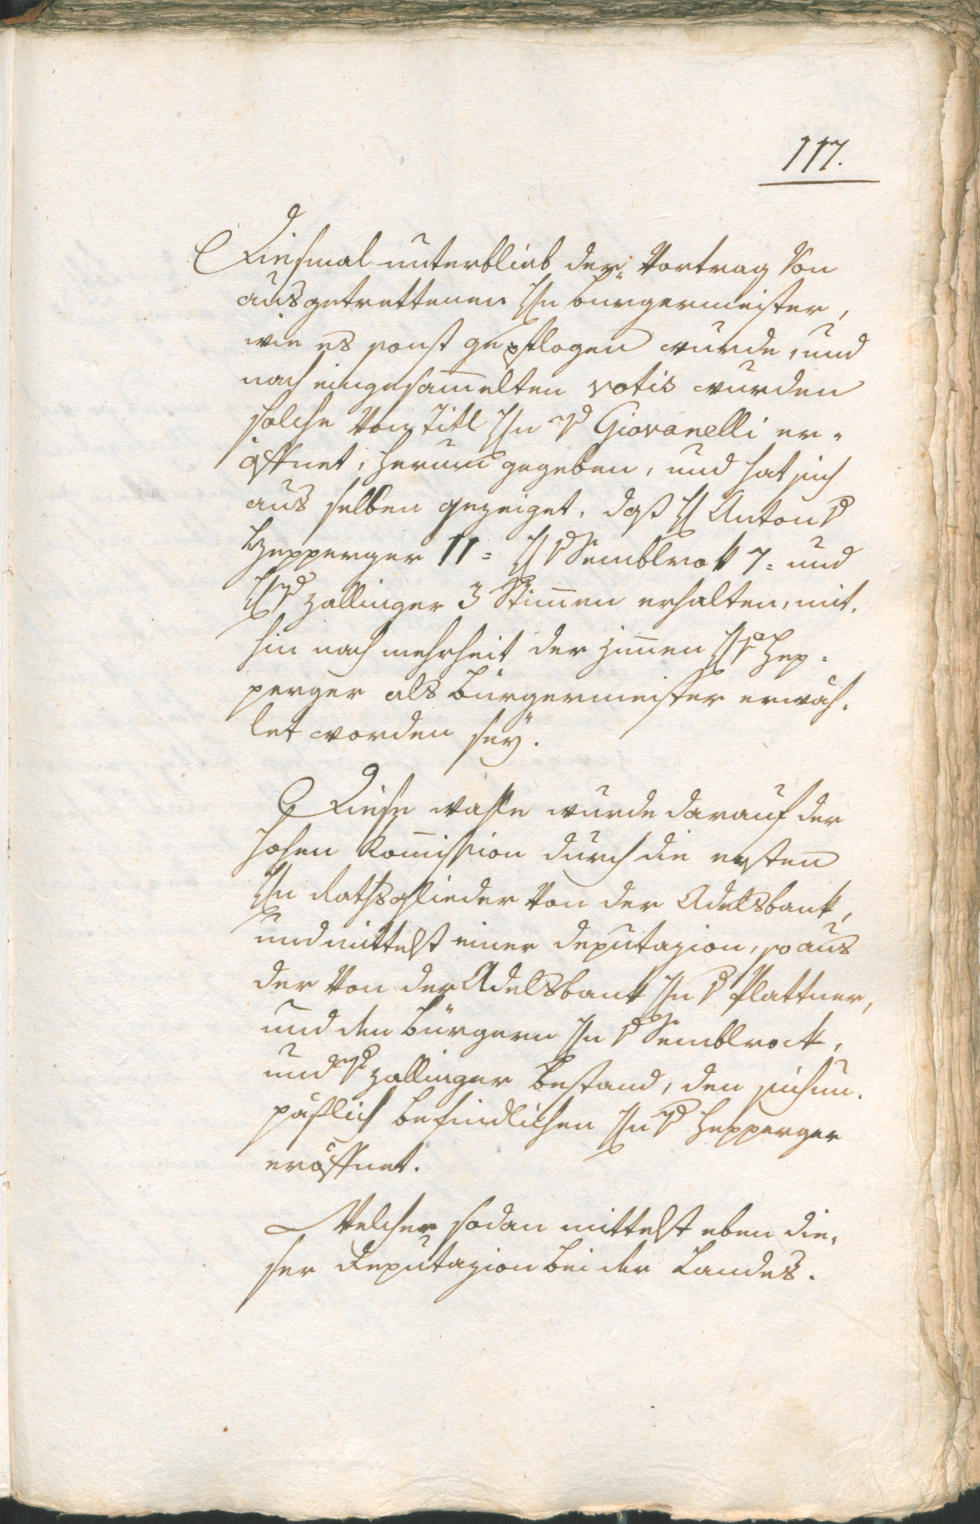 117.
Diesmal unterblieb der Vortrag von
ausgetrettenen Hn Bürgermeister,
wie es sonst gepflogen wurde, und
nach eingesam̅elten votis wurden
solche Von Titl Hn v Giovanelli er-
öffnet, herum gegeben, und hat sich
aus selben gezeiget, daß H Anton v
Hepperger 11= H v Semblrok 7= und
H v Zallinger 3 Stim̅en erhalten, mit-
hin nach mehrheit der Stim̅en H v Hep-
perger als Bürgermeister erwäh-
let worden seÿ.
Diese wahl wurde darauf der
hohen Kom̅ission durch die ersten
Hn Rathsglieder Von der Adelsbank,
und mittelst einer Deputazion, so aus
der Von der Adelsbank Hn v Plattner,
und den Bürgern Hn v Semblrock,
und v Zallinger bestand, den sich un-
päßlich befindlichen Hn v Hepperger
eröffnet.
Welcher sodan mittelst eben die-
ser Deputazion bei der Landes-